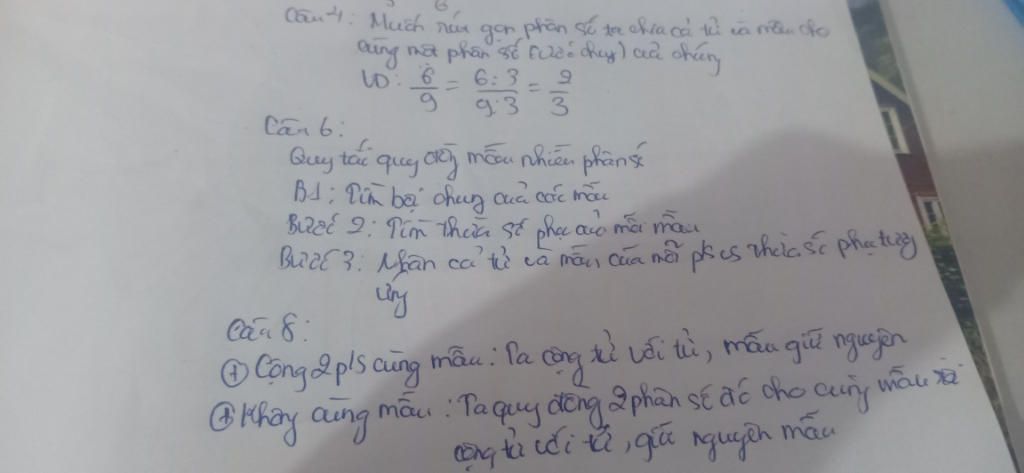 Câu 4: Muốn rút gọn phân số ta chia cả tử và mẫu cho
cùng một phân số (ước chung) của chúng
VD: 6/9 = 6:3/9:3 = 2/3
Câu 6:
Quy tắc quy đồng mẫu nhiều phân số
B1: Tìm bội chung của các mẫu
Bước 2: Tìm thừa số phụ của mỗi mẫu
Bước 3: Nhân cả tử và mẫu của mỗi ps thừa số phụ tương
ứng
Câu 8:
+ Cộng 2 p/s cùng mẫu: Ta cộng tử với tử, mẫu giữ nguyên
+ Không cùng mẫu: Ta quy đồng 2 phân số để cho cùng mẫu rồi
cộng tử với tử, giữ nguyên mẫu